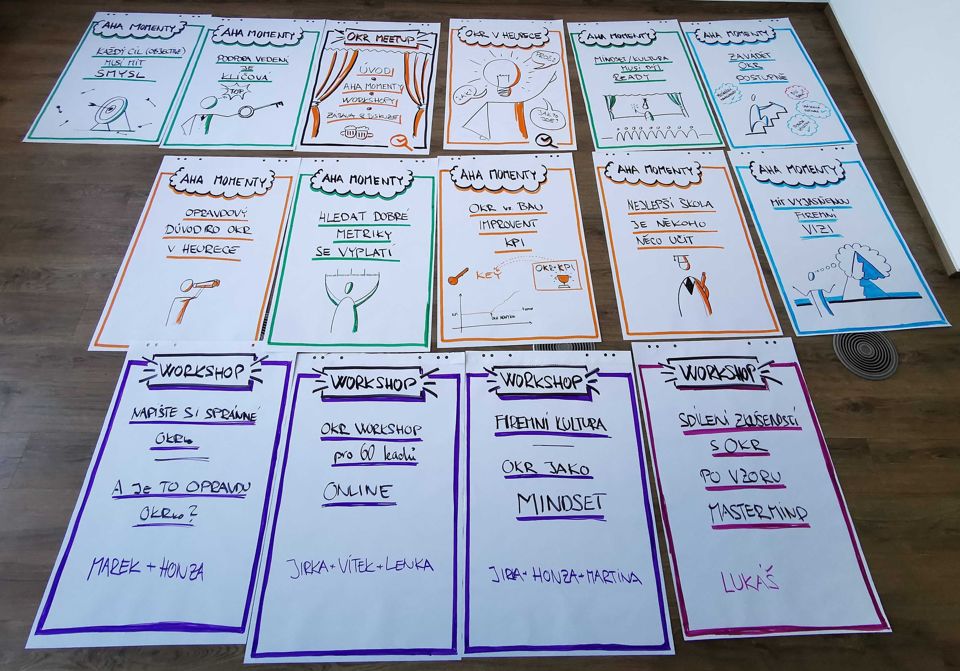 AHA MOMENTY
KAŽDÝ CÍL (OBJECTIVE)
MUSÍ MÍT
SMYSL
AHA MOMENTY
PODPORA VEDENÍ
JE
KLÍČOVÁ
TOP
OKR MEETUP
ÚVOD
AHA MOMENTY
WORKSHOPY
ZÁBAVA & DISKUZE
OKR V HEURECE
PROČ?
JAK?
JAK TO
JDE?
AHA MOMENTY
MINDSET/KULTURA
MUSÍ BÝT
READY
AHA MOMENTY
ZAVÁDĚT
OKR
POSTUPNĚ
AHA MOMENTY
OPRAVDOVÝ
DŮVOD PRO OKR
V HEURECE
AHA MOMENTY
HLEDAT DOBRÉ
METRIKY
SE VYPLATÍ
AHA MOMENTY
OKR vs. BAU
IMPROVENT
KPI
KEY
OKR→KPI
AHA MOMENTY
NEJLEPŠÍ ŠKOLA
JE NĚKOHO
NĚCO UČIT
AHA MOMENTY
MÍT VYJASNĚNOU
FIREMNÍ
VIZI
WORKSHOP
NAPIŠTE SI SPRÁVNÉ
OKRko
A JE TO OPRAVDU
OKRko?
MAREK + HONZA
WORKSHOP
OKR WORKSHOP
pro 60 leadů
ONLINE
JIRKA + VÍTEK + LENKA
WORKSHOP
FIREMNÍ KULTURA
OKR JAKO
MINDSET
JIRKA + HONZA + MARTINA
WORKSHOP
SDÍLENÍ ZKUŠENOSTÍ
S OKR
PO VZORU
MASTERMIND
LUKÁŠ